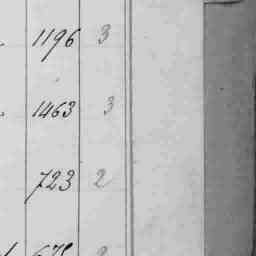 1196 3
1463 3
723 2